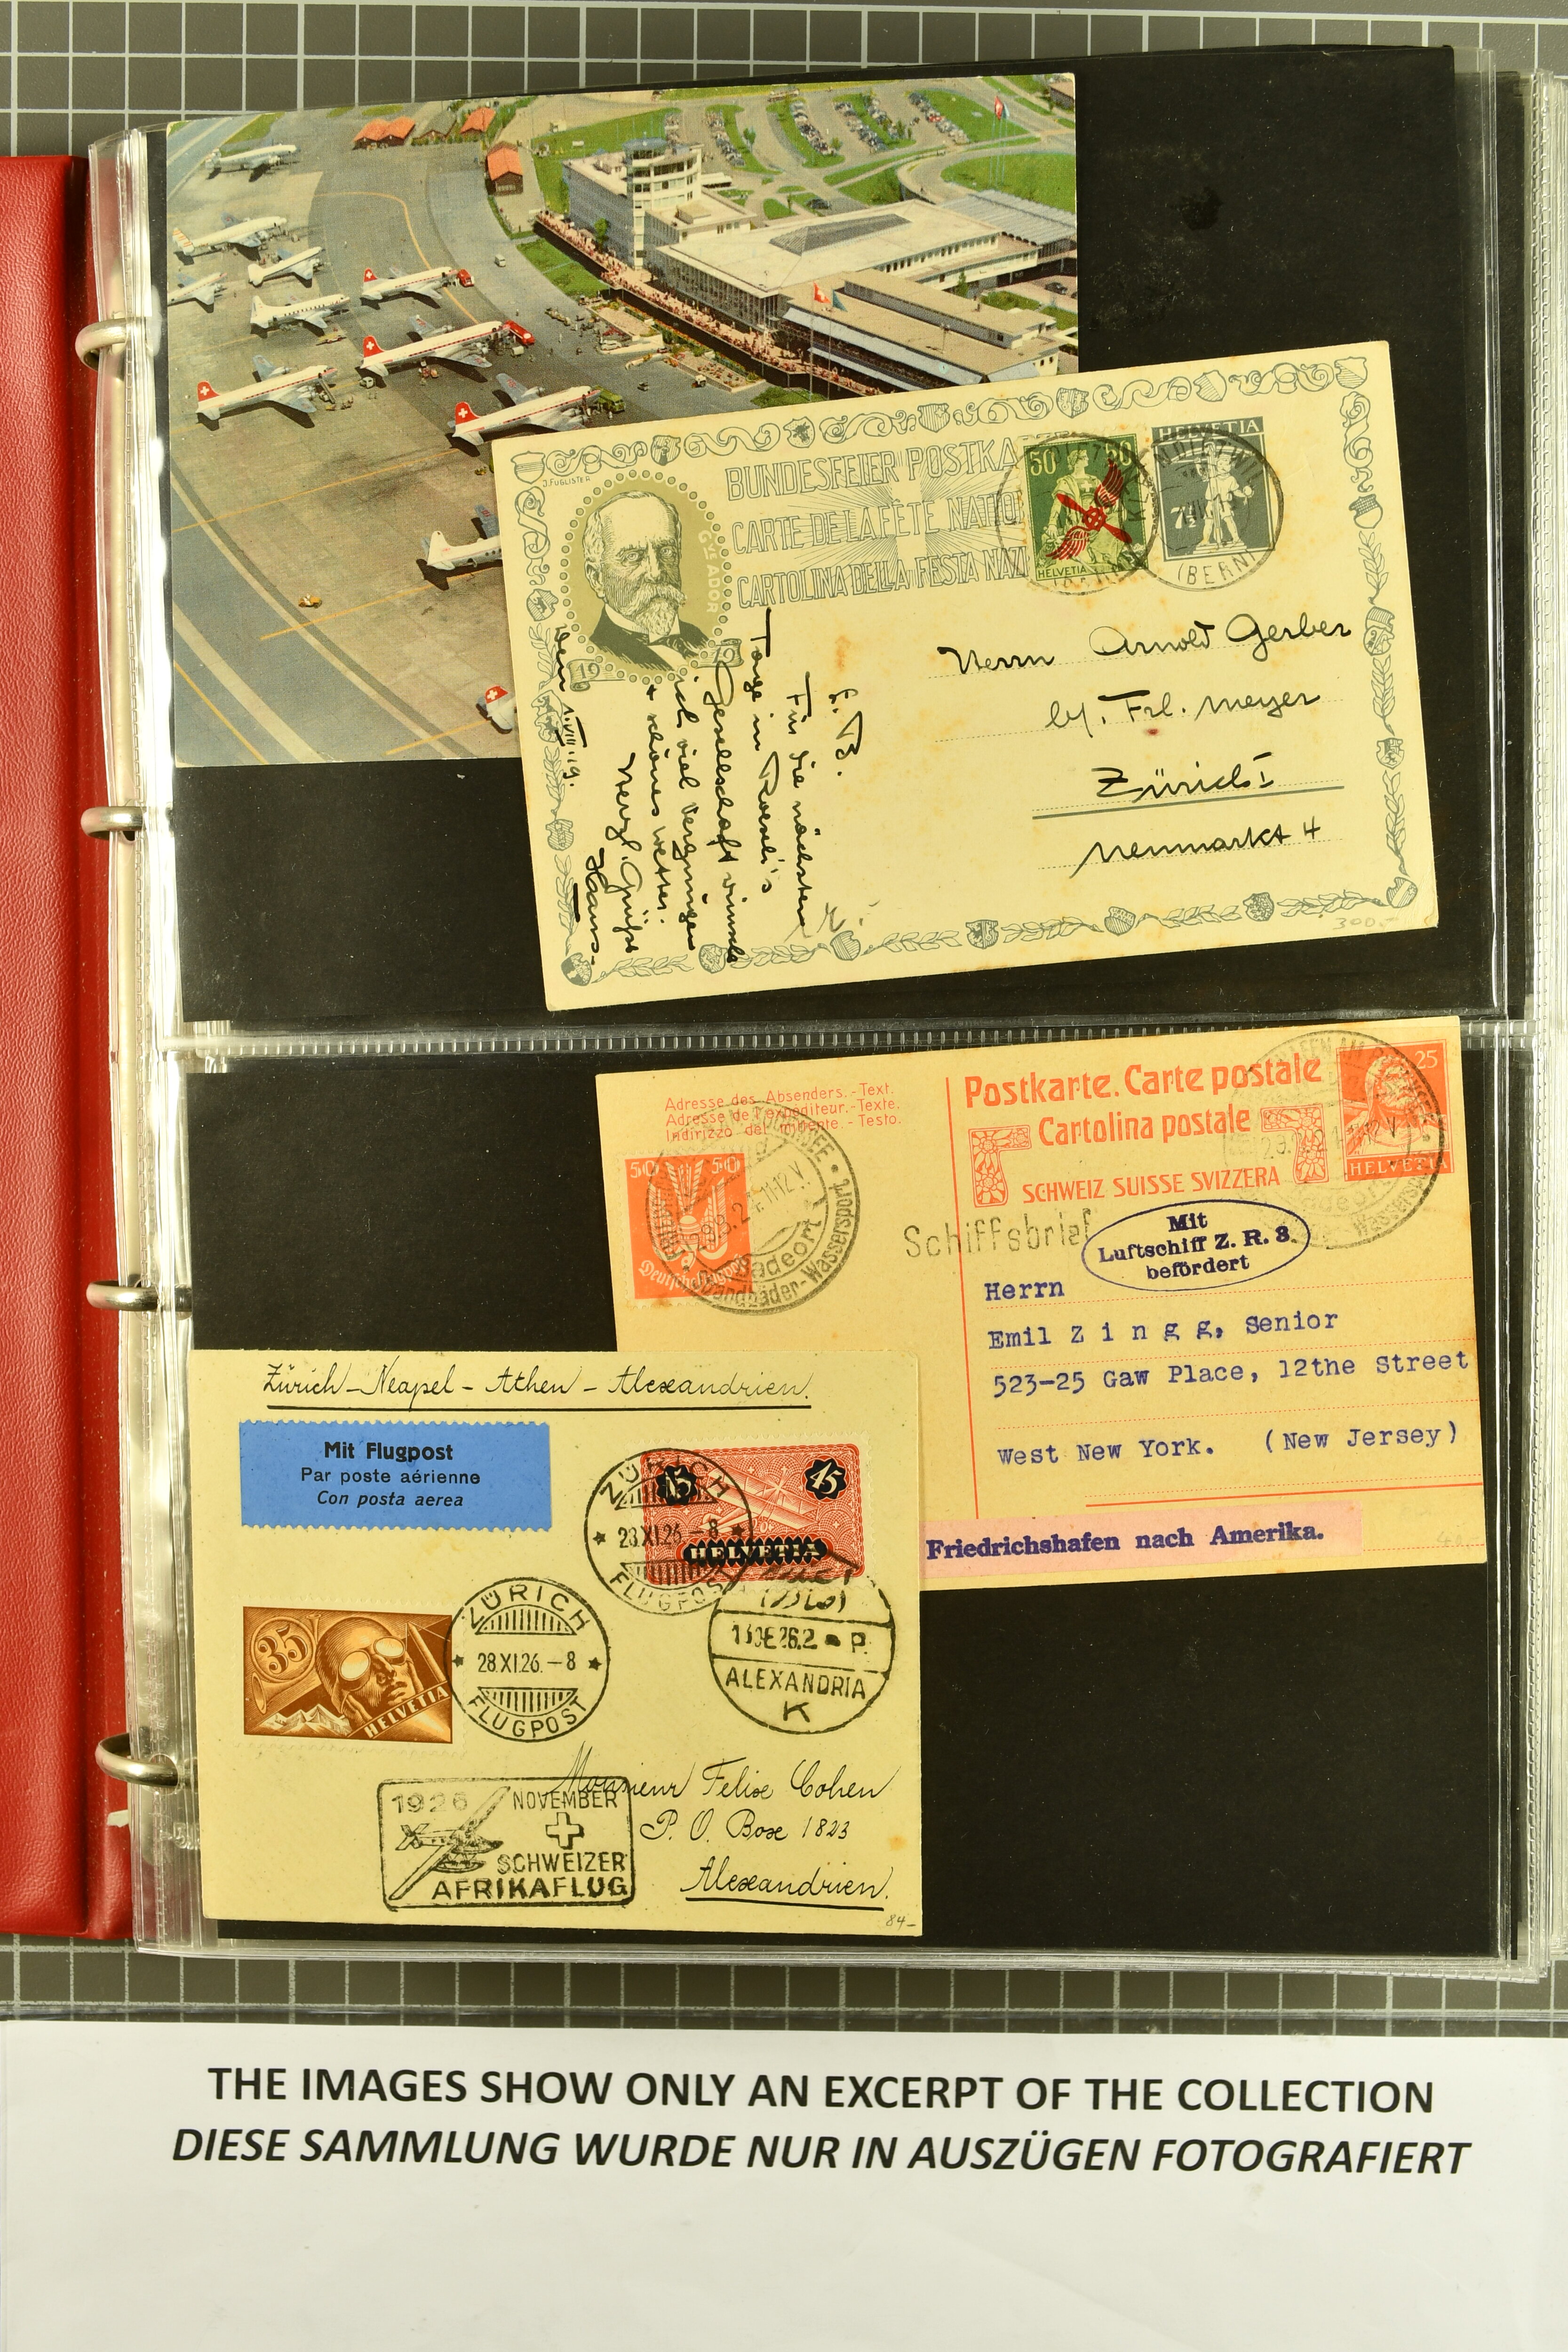 J. FÜGLISTER
BUNDESFEIER POSTKA
CARTE DE LA FÊTE NATIO
CARTOLINA DELLA FESTA NAZI
GVE ADOR
19 19
50 50
HELVETIA
HELVETIA
7½
(BERN)
Herrn Arnold Gerber
by. Frl. Meyer
Zürich I
Neumarkt 4
300.-
Bern 1.VIII 19.
L. B.
Für die nächsten
Tage in Roesli's
Gesellschaft wünsche
ich viel Vergnügen
+ schönes Wetter.
Herzl. Grüße
Hans.
Adresse des Absenders.-Text.
Adresse de l'expéditeur.-Texte.
Indirizzo del mittente.-Testo.
Postkarte. Carte postale
Cartolina postale
SCHWEIZ SUISSE SVIZZERA
25
HELVETIA
50 50
Deutsche Flugpost
11-12 V.
Badeort
Strandbäder-Wassersport
Schiffsbrief
Mit
Luftschiff Z. R. 3
befördert
Herrn
Emil Z i n g g, Senior
523-25 Gaw Place, 12the Street
West New York. (New Jersey)
Friedrichshafen nach Amerika.
Zürich-Neapel-Athen-Alexandrien.
Mit Flugpost
Par poste aérienne
Con posta aerea
45
ZÜRICH
28.XI.26.-8
FLUGPOST
35
HELVETIA
ZÜRICH
28.XI.26.-8
FLUGPOST
ALEXANDRIA
K
1926 NOVEMBER
SCHWEIZER
AFRIKAFLUG
Monsieur Felix Cohen
P. O. Box 1823
Alexandrien.
84-
THE IMAGES SHOW ONLY AN EXCERPT OF THE COLLECTION
DIESE SAMMLUNG WURDE NUR IN AUSZÜGEN FOTOGRAFIERT